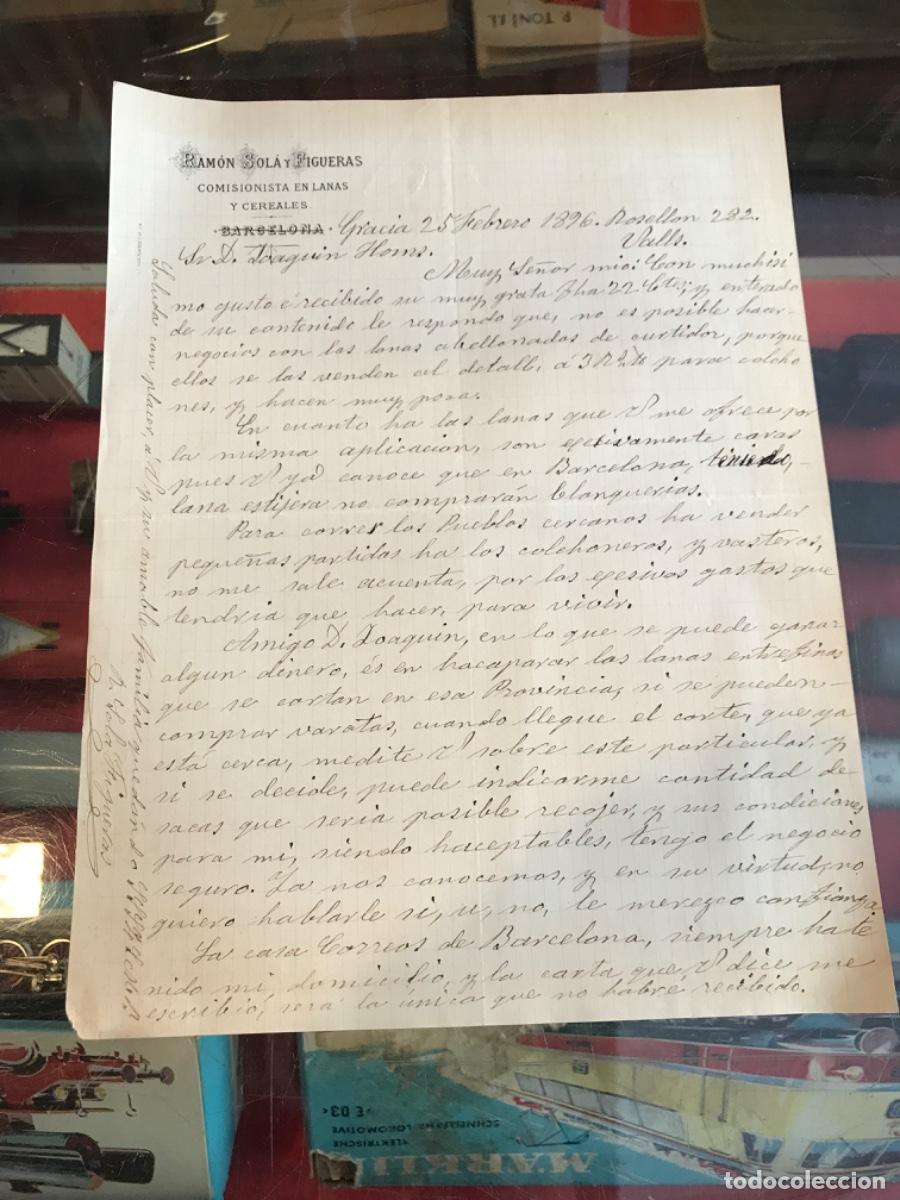 P. TONI 11
RAMÓN SOLÁ Y FIGUERAS
COMISIONISTA EN LANAS
Y CEREALES
BARCELONA Gracia 25 Febrero 1896. Rosellon 282.
Sr D. Joaquin Homs. Valls.
Muy Señor mio: Con muchisi
mo gusto é recibido su muy grata fha 22 Ctes; y enterado
de su contenido le respondo que, no es posible hacer
negocios con las lanas abellonadas de curtidor, porque
ellos se las venden al detall, á para colcho
nes, y hacen muy poca.
En cuanto ha las lanas que V me ofrece por
la misma aplicacion, son esesivamente caras
pues V ya conoce que en Barcelona,
lana estijera no comprarán blanquerias.
Para correr los Pueblos cercanos ha vender
pequeñas partidas ha los colchoneros, y vasteros,
no me sale acuenta, por los esesivos gastos que
tendria que hacer, para vivir.
Amigo D. Joaquin, en lo que se puede ganar
algun dinero, és en hacaparar las lanas entrefinas
que se cortan en esa Provincia, si se pueden
comprar varatas, cuando llegue el corte, que ya
está cerca, medite V sobre este particular, y
si se decide, puede indicarme cantidad de
sacas que seria posible recojer, y sus condiciones
para mi, siendo haceptables, tengo el negocio
seguro. Ya nos conocemos, y en su virtud, no
quiero hablarle si, u, no, le merezco confianza.
La casa Correos de Barcelona, siempre ha te
nido mi domicilio, y la carta que V dice me
escribió, será la única que no habre recibido.
Saluda con placer, á V y su amable familia quedando
R. Sola Figueras
E 03
ELEKTRISCHE
SCHNELLZUG LOKOMOTIVE
MÄRKLIN
todocoleccion
todocoleccion.net